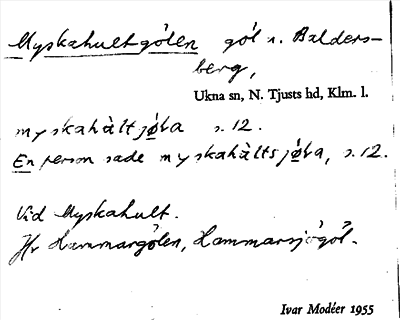 Myskahultgölen göl n. Balders-
berg,
Ukna sn, N. Tjusts hd, Klm. l.
myskahàltjø̀la s. 12.
En person sade myskahàltsjø̀la, s. 12.
Vid Myskahult.
Jfr Hammargölen, Hammarsjögöl.
Ivar Modéer 1955